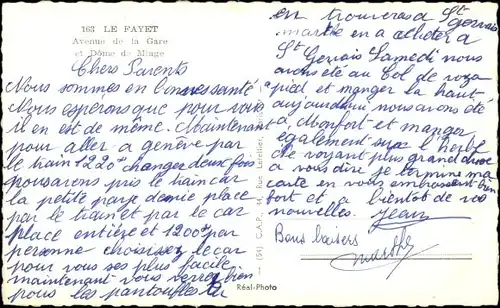 163 LE FAYET
Avenue de la Gare
et Dôme de Miage
Chers Parents
Nous sommes en bonne santé
Nous esperons que pour vous
il en est de même. Maintenant
pour aller a genève par
le train 1220 changer deux fois
pousarons pris le train car
la petite paye demie place
par le train et par le car
place entière et 1200 par
personne choisisez le car
pour vous ses plus facile
maintenant vous verrez bien
pour les pantoufles tu
en trouveras a St gervais
marthe en a acheter a
St Gervais Samedi nous
avons été au Col de voza
pied et manger la haut
aujourdhui nous avons été
a Monfort et manger
également sur l'herbe
ne voyant plus grand chose
a vous dire je termine ma
carte en vous embrassant bien
fort et a bientôt de vos
nouvelles. Jean
Bons baisers
marthe
(51) C.A.P. 44, Rue
Réal-Photo